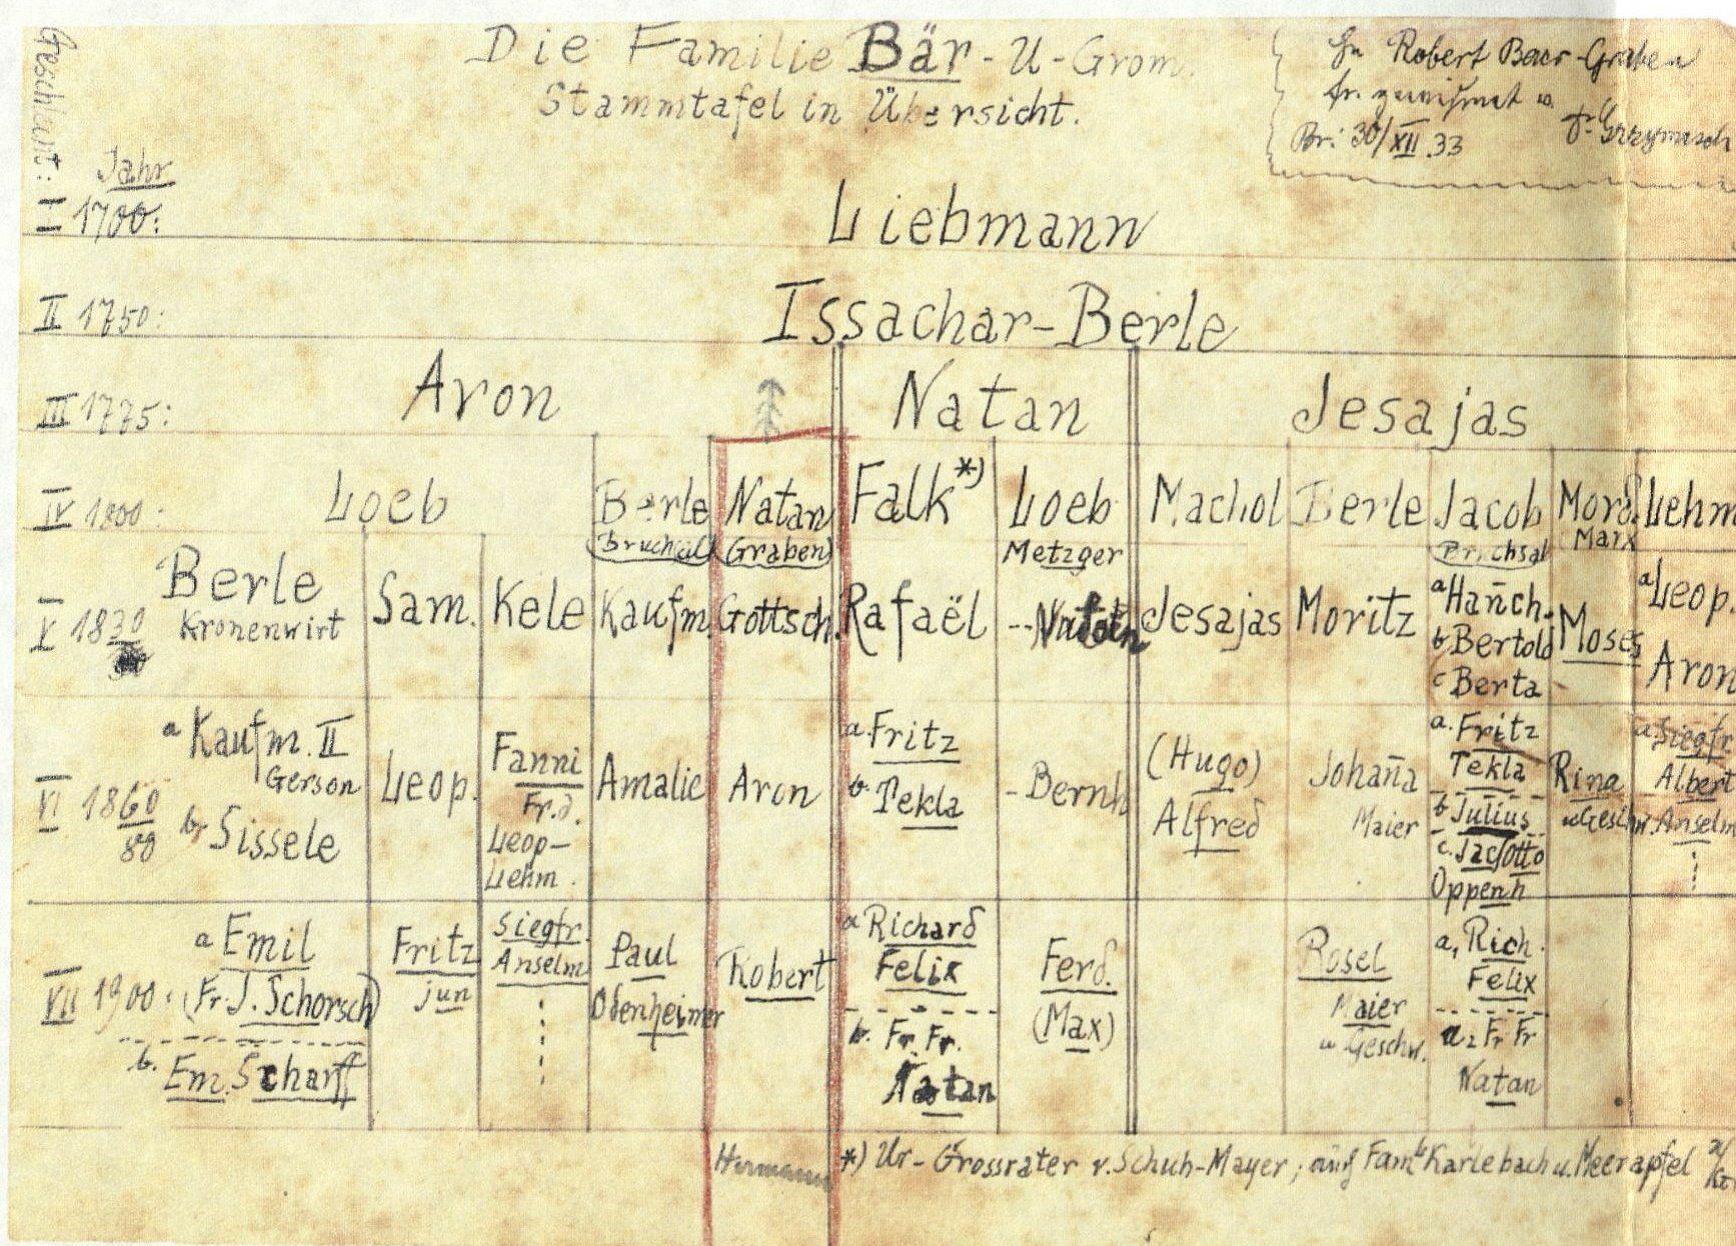 Die Familie Bär-U-Grom.
Stammtafel in Übersicht.
Robert Baer-Graben
30/XII.33
Geschlecht:
Jahr
I 1700:
Liebmann
II 1750:
Issachar-Berle
III 1775:
Aron Natan Jesajas
IV 1800:
Loeb
Berle
Bruchsal
Natan
Graben
Falk*)
Loeb
Metzger
Machol
Berle
Jacob
Bruchsal
Mord.
Marx
Lehm
V 1830
Berle
Kronenwirt
Sam.
Kele
Kaufm.
Gottsch.
Rafaël
--Natan
Jesajas
Moritz
a Hañch.
b Bertold
c Berta
Moses
a Leop.
Aron
VI 1860
80
a Kaufm. II
Gerson
b, Sissele
Leop.
Fanni
Fr. d.
Leop-
Lehm.
Amalie
Aron
a. Fritz
b. Tekla
- Bernh
(Hugo)
Alfred
Johaña
Maier
a. Fritz
Tekla
b Julius
c. Jac Otto
Oppenh
Rina
u Geschw.
a. Siegfr
Albert
Anselm
VII 1900.
a Emil
(Fr. J. Schorsch)
b. Em. Scharff
Fritz
jun
Siegfr.
Anselm
Paul
Odenheimer
Robert
a Richard
Felix
b. Fr. Fr.
Natan
Ferd.
(Max)
Rosel
Maier
u Geschw.
a, Rich.
Felix
a2 Fr Fr
Natan
Hermann
*) Ur-Grossvater v. Schuh-Mayer; auch Fam. Karlebach u. Meerapfel